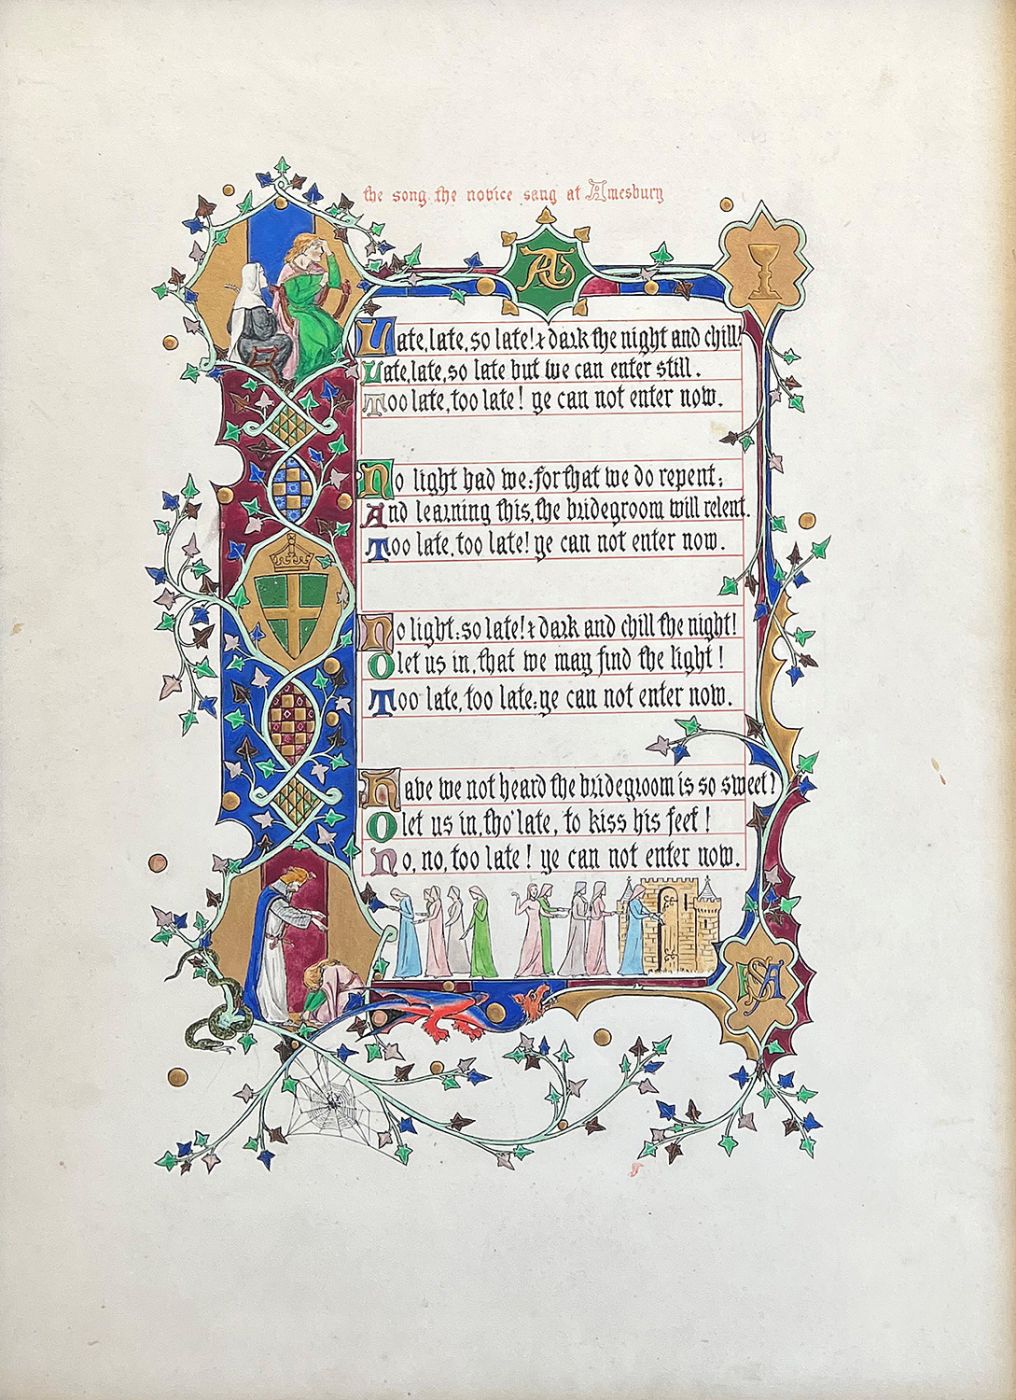 the song the novice sang at Amesbury
AT
Late, late, so late! & dark the night and chill!
Late, late, so late but we can enter still.
Too late, too late! ye can not enter now.
No light had we: for that we do repent;
And learning this, the bridegroom will relent.
Too late, too late! ye can not enter now.
No light: so late! & dark and chill the night!
O let us in, that we may find the light!
Too late, too late: ye can not enter now.
Have we not heard the bridegroom is so sweet?
O let us in, tho' late, to kiss his feet!
No, no, too late! ye can not enter now.